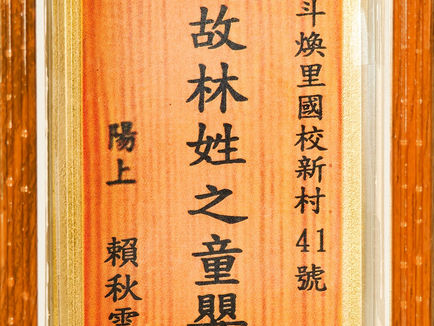 斗煥里國校新村41號
故林姓之童嬰
陽上 賴秋雲